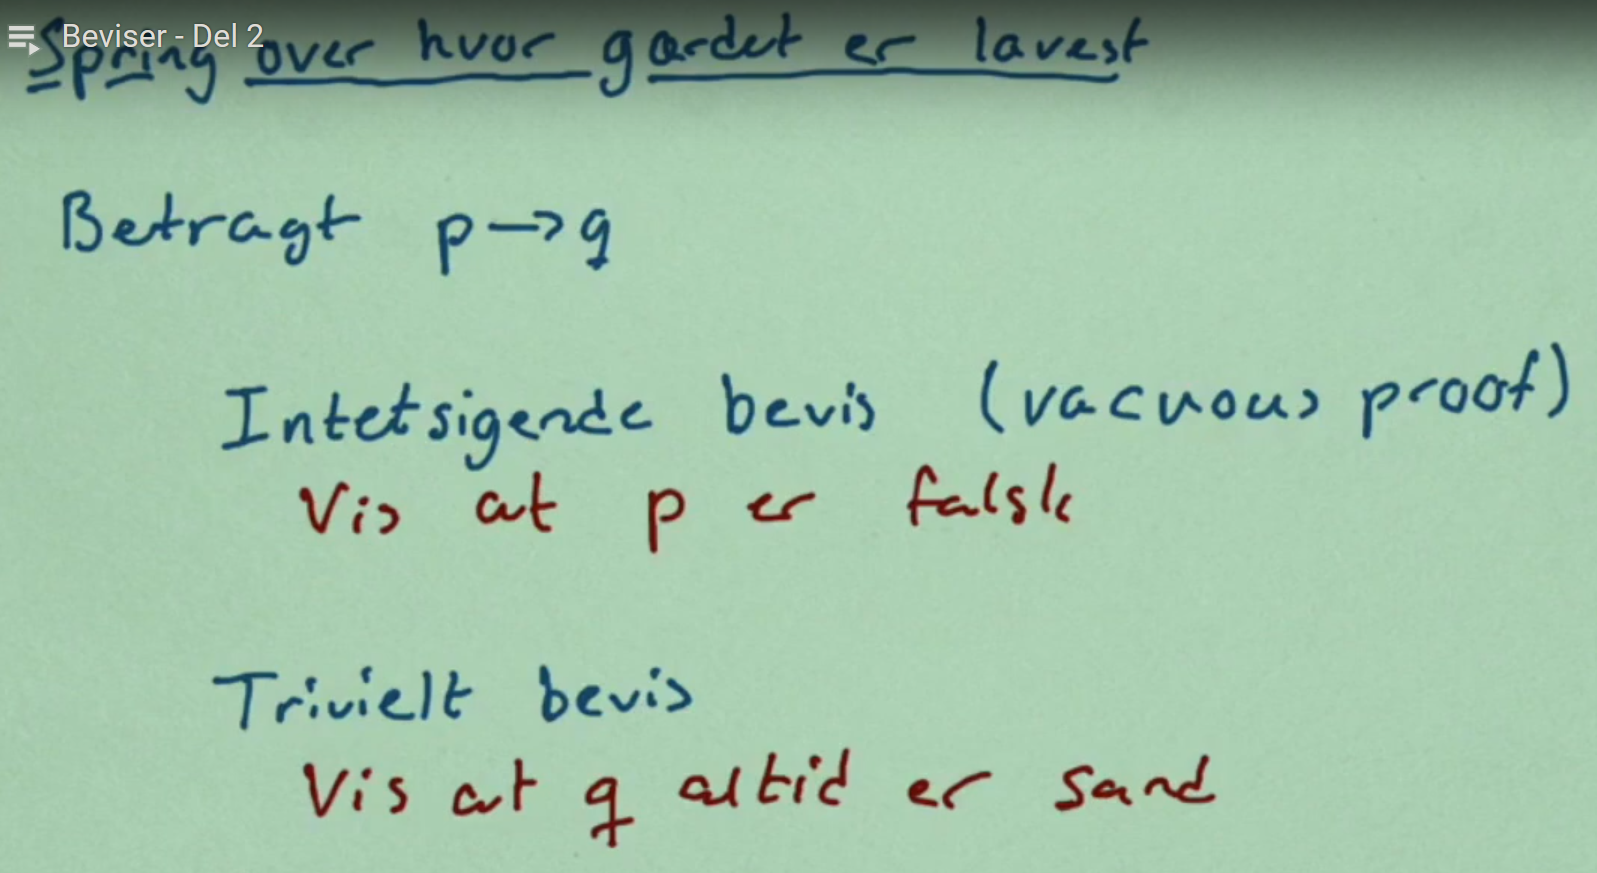 Beviser - Del 2
Spring over hvor gærdet er lavest
Betragt p → q
Intetsigende bevis (vacuous proof)
Vis at p er falsk
Trivielt bevis
Vis at q altid er sand